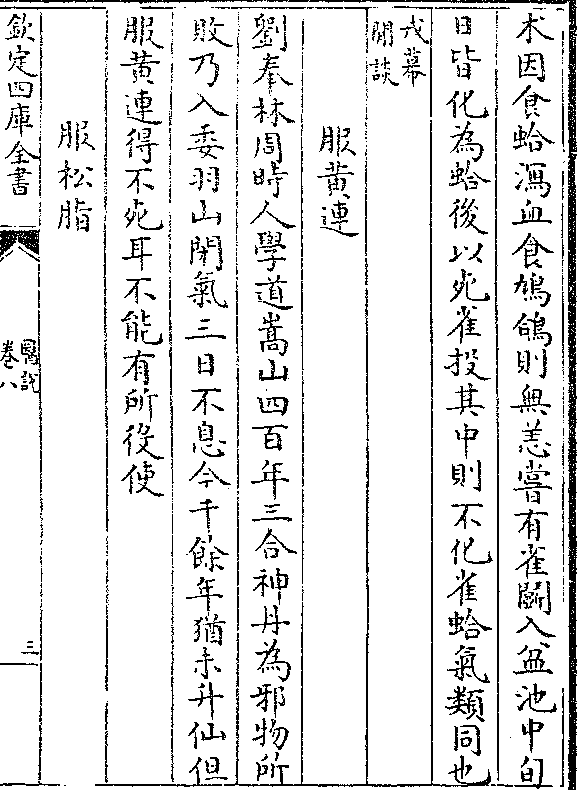 术因食蛤瀉血食鳩鴿則無恙嘗有雀鬬入盆池中旬
日皆化為蛤後以死雀投其中則不化雀蛤氣類同也
戎幕
閒談
服黄連
劉奉林周時人學道嵩山四百年三合神丹為邪物所
敗乃入委羽山閉氣三日不息今千餘年猶未升仙但
服黄連得不死耳不能有所役使
服松脂
欽定四庫全書
醫説
卷八
三